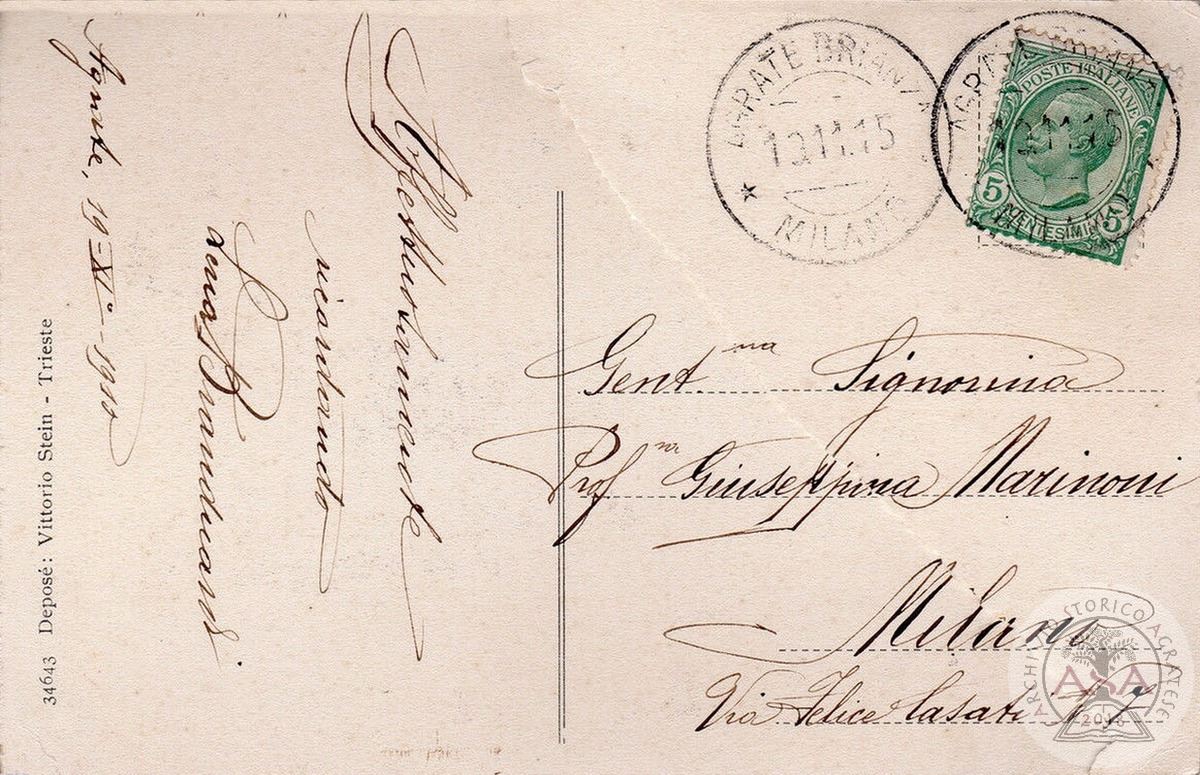 Agrate, 19=XI°-1915
Affettuosamente
ricordando
Brambilla
34643 Deposé: Vittorio Stein - Trieste
AGRATE BRIANZA
19.11.15
MILANO
AGRATE BRIANZA
19.11.15
MILANO
POSTE ITALIANE
5 CENTESIMI 5
Gent.ma Signorina
Prof.ra Giuseppina Marinoni
Milano
Via Felice Casati N. 7
ARCHIVIO STORICO AGRATESE
ASA
2018